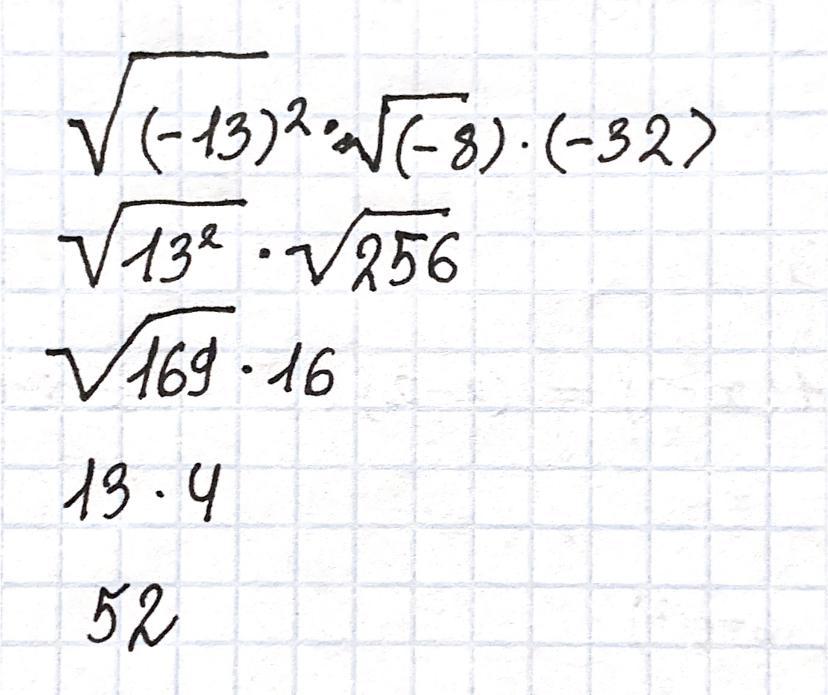 √(-13)² · √(-8) · (-32)
√13² · √256
√169 · 16
13 · 4
52